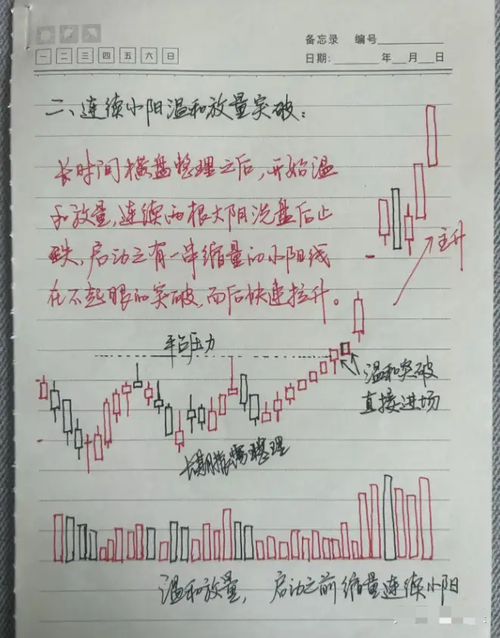 备忘录 编号
一 二 三 四 五 六 日
日期: 年 月 日
二、连续小阳温和放量突破:
长时间横盘整理之后,开始温
和放量,连续两根大阴洗盘后止
跌,启动之有一串缩量的小阳线
在不起眼的突破,而后快速拉升。
主升
平台压力
温和突破
直接进场
长期横盘整理
温和放量,启动之前缩量连续小阳